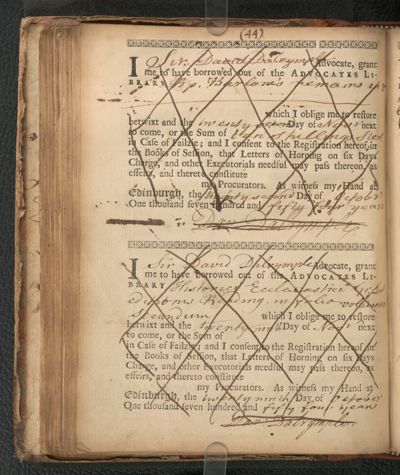 (44)
I Sir David Dalrymple Advocate, grant
me to have borrowed out of the ADVOCATES LI-
BRARY Bp. Barlow's remains 8vo
which I oblige me to restore
betwixt and the twenty Day of next
to come, or the Sum of ten shillings Ster
in Case of Failzie; and I consent to the Registration hereof in
the Books of Session, that Letters of Horning on six Days
Charge, and other Executorials needful may pass thereon, as
effeirs, and thereto constitute
my Procurators. As witness my Hand at
Edinburgh, the twenty second Day of October
One thousand seven hundred and fifty four years
Dav Dalrymple.
I Sir David Dalrymple Advocate, grant
me to have borrowed out of the ADVOCATES LI-
BRARY Historiae Ecclesiasticae
editions Reading, in folio volumen
secundum which I oblige me to restore
betwixt and the twenty ninth Day of Novr next
to come, or the Sum of
in Case of Failzie; and I consent to the Registration hereof in
the Books of Session, that Letters of Horning on six Days
Charge, and other Executorials needful may pass thereon, as
effeirs, and thereto constitute
my Procurators. As witness my Hand at
Edinburgh, the twenty ninth Day of October
One thousand seven hundred and fifty four years
Dav Dalrymple.